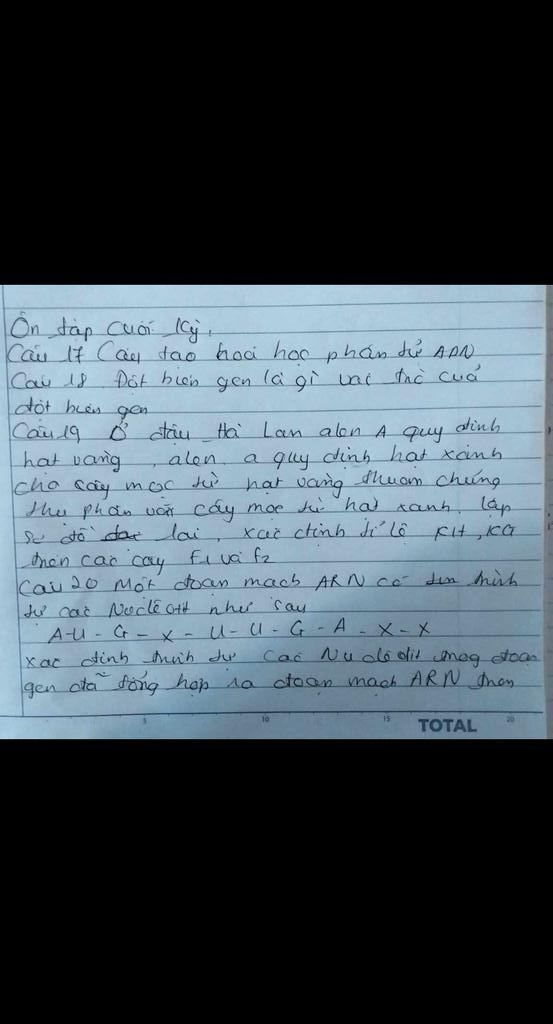 Ôn tập cuối kỳ.
Câu 17 Cấu tạo hoá học phân tử ADN
Câu 18 Đột biến gen là gì vai trò của
đột biến gen
Câu 19 Ở đậu Hà Lan alen A quy định
hạt vàng, alen a quy định hạt xanh
cho cây mọc từ hạt vàng thuần chủng
thụ phấn với cây mọc từ hạt xanh. lập
sơ đồ lai, xác định tỉ lệ KH, KG
trên các cây F1 và F2
Câu 20 Một đoạn mạch ARN có trình
tự các Nuclêotit như sau
A-U-G-X-U-U-G-A-X-X
xác định trình tự các Nuclêotit trong đoạn
gen đã tổng hợp ra đoạn mạch ARN trên
5 10 15 TOTAL 20